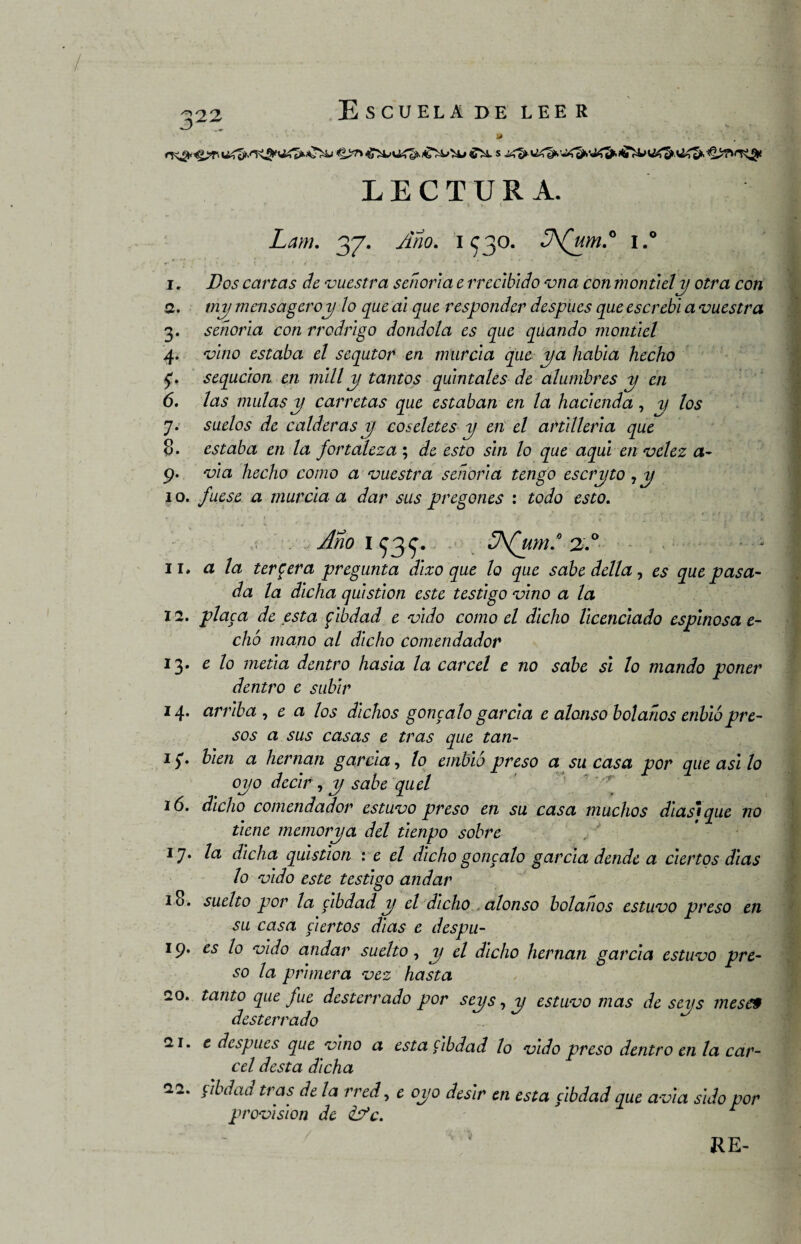 322 ESCUELA DE LEER
LECTURA.
Lam. 37. Año. 1530. Num.º 1.º
1. Dos cartas de vuestra señoria e rrecibido vna con montiel y otra con
2. my mensagero y lo que ai que responder despues que escrebi a vuestra
3. señoria con rrodrigo dondola es que quando montiel
4. vino estaba el sequtor en murcia que ya habia hecho
5. sequcion en mill y tantos quintales de alumbres y en
6. las mulas y carretas que estaban en la hacienda, y los
7. suelos de calderas y coseletes y en el artilleria que
8. estaba en la fortaleza; de esto sin lo que aqui en velez a-
9. via hecho como a vuestra señoria tengo escryto, y
10. fuese a murcia a dar sus pregones : todo esto.
Año 1535. Num.º 2.º
11. a la terçera pregunta dixo que lo que sabe della, es que pasa-
da la dicha quistion este testigo vino a la
12. plaça de esta çibdad e vido como el dicho licenciado espinosa e-
chó mano al dicho comendador
13. e lo metia dentro hasia la carcel e no sabe si lo mando poner
dentro e subir
14. arriba, e a los dichos gonçalo garcia e alonso bolaños enbió pre-
sos a sus casas e tras que tan-
15. bien a hernan garcia, lo embió preso a su casa por que asi lo
oyo decir, y sabe quel
16. dicho comendador estuvo preso en su casa muchos dias que no
tiene memorya del tienpo sobre
17. la dicha quistion : e el dicho gonçalo garcia dende a ciertos dias
lo vido este testigo andar
18. suelto por la çibdad y el dicho alonso bolaños estuvo preso en
su casa çiertos dias e despu-
19. es lo vido andar suelto, y el dicho hernan garcia estuvo pre-
so la primera vez hasta
20. tanto que fue desterrado por seys, y estuvo mas de seys meses
desterrado
21. e despues que vino a esta çibdad lo vido preso dentro en la car-
cel desta dicha
22. çibdad tras de la rred, e oyo desir en esta çibdad que avia sido por
provision de &c.
RE-